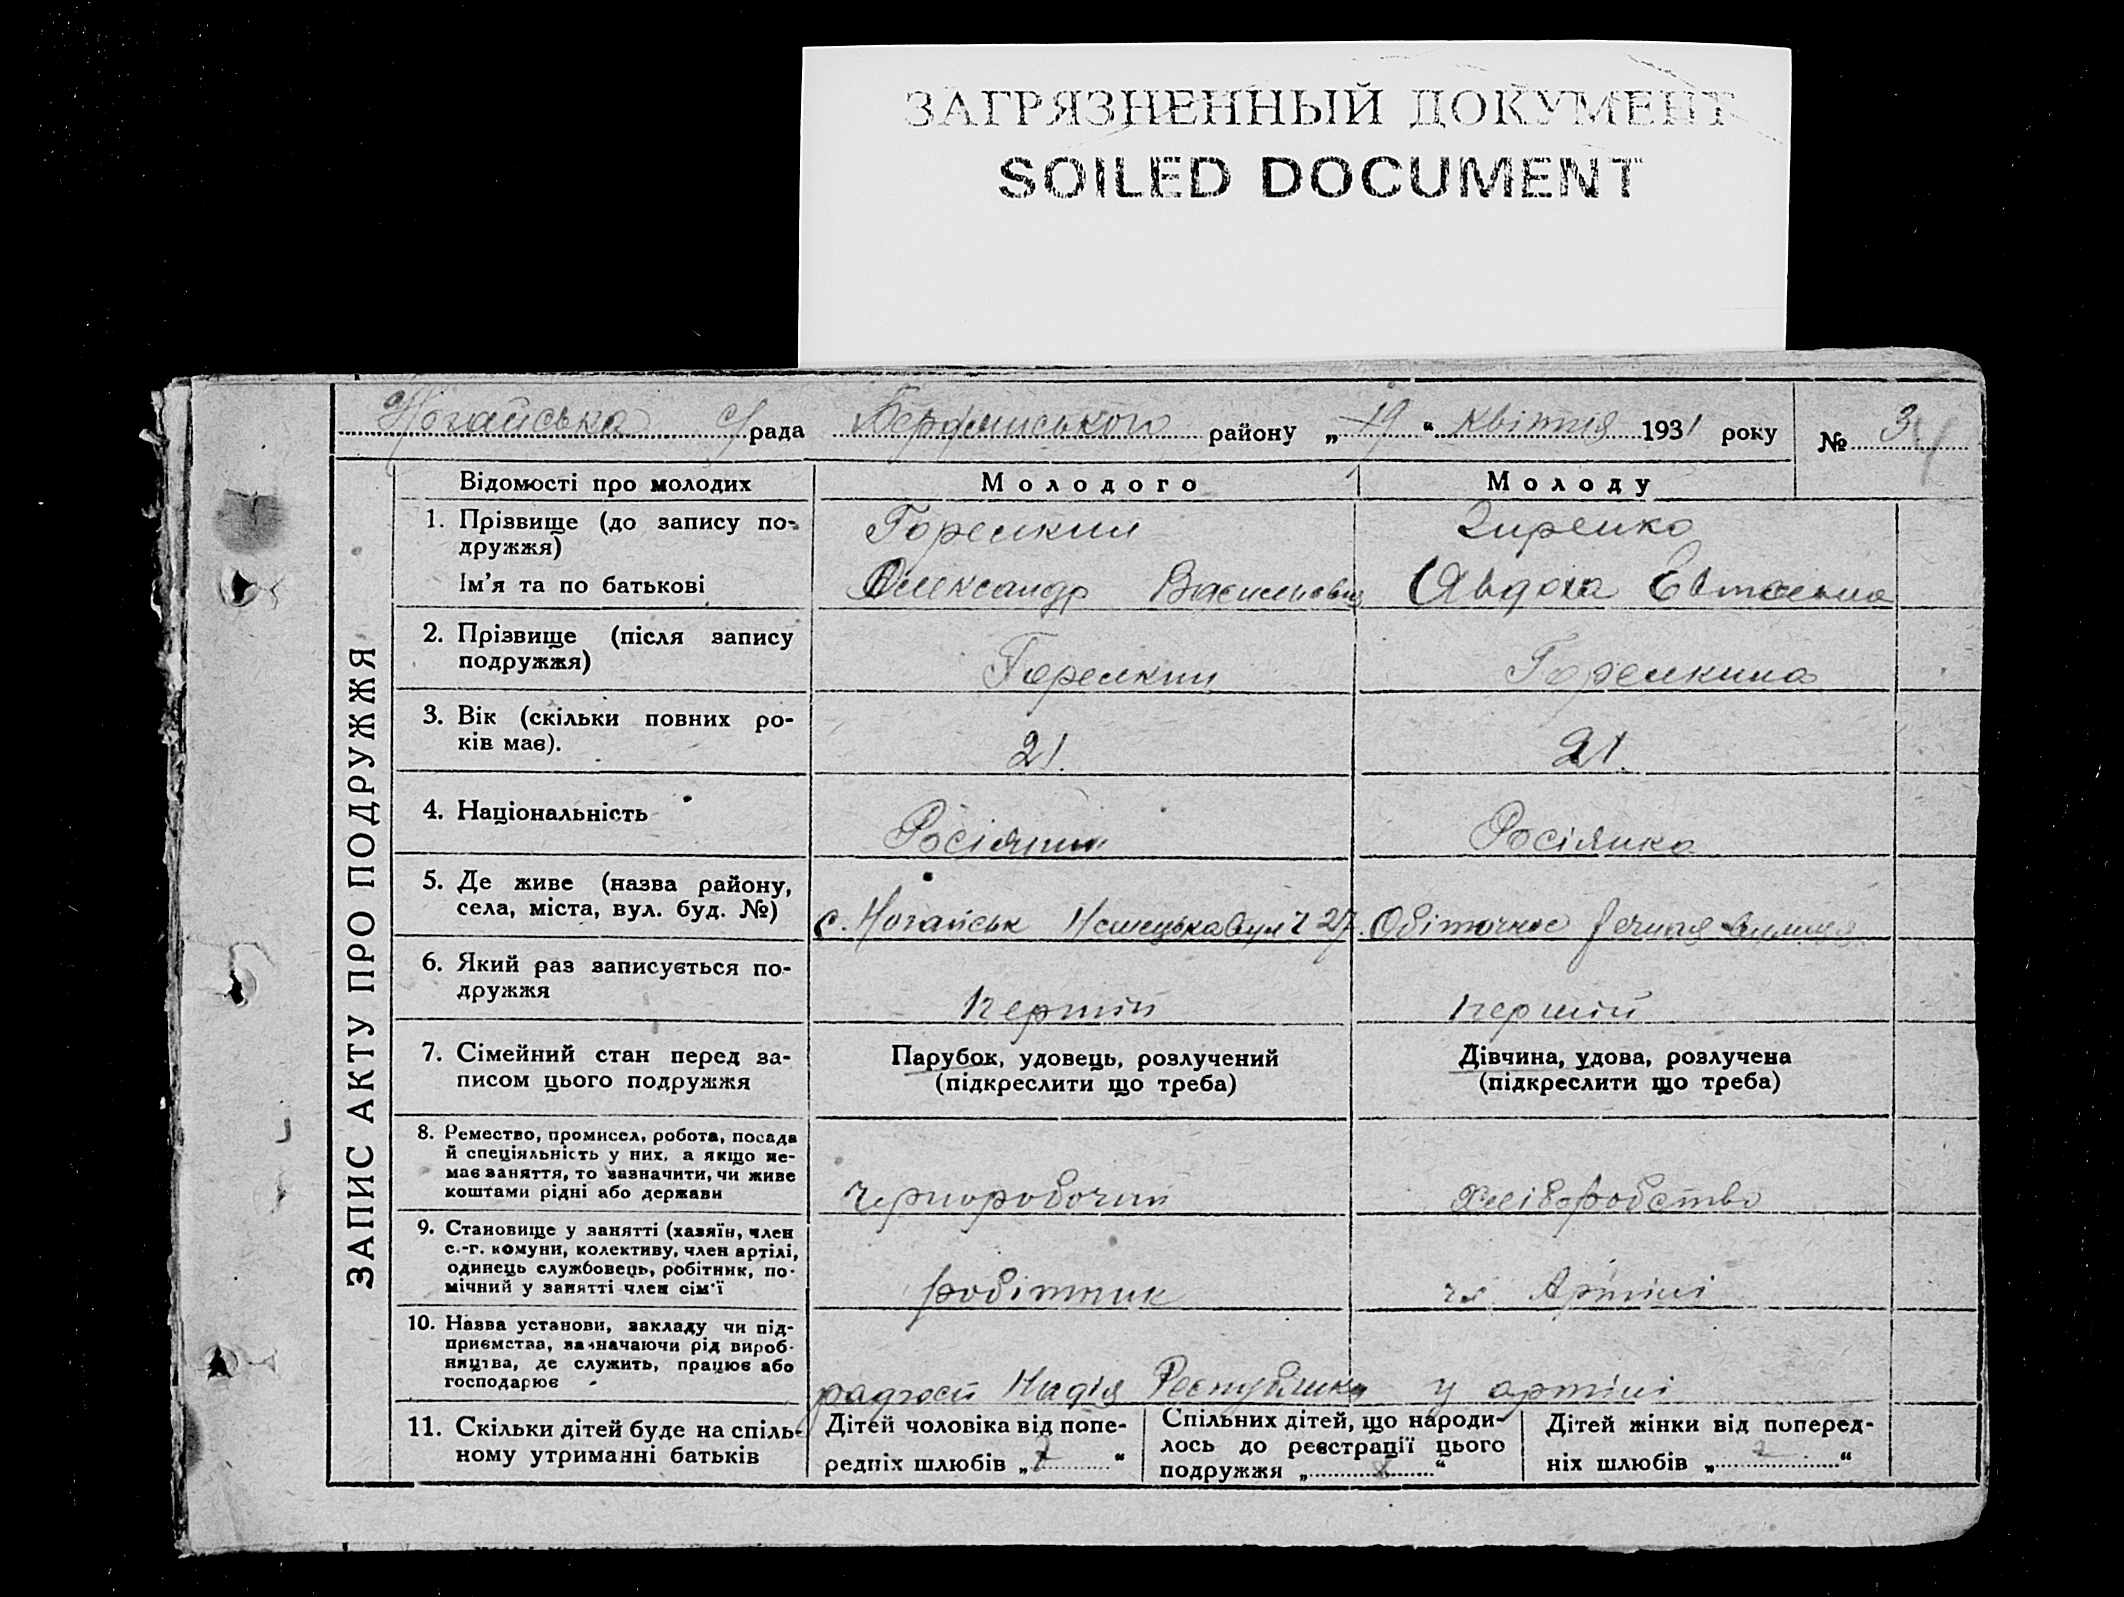 ЗАГРЯЗНЕННЫЙ ДОКУМЕНТ
SOILED DOCUMENT
Ногайська с/рада Бердянського району „19“ квітня 1931 року № 34
ЗАПИС АКТУ ПРО ПОДРУЖЖЯ
Відомості про молодих Молодого Молоду
1. Прізвище (до запису по-
дружжя)
Горелкин
Ім'я та по батькові
Олександр Васильович Явдоха
2. Прізвище (після запису
подружжя)
Горелкин Горелкина
3. Вік (скільки повних ро-
ків має).
21. 21.
4. Національність
Росіянин Росіянка
5. Де живе (назва району,
села, міста, вул. буд. №)
с. Ногайськ Немецька вул ч 27. Обіточное вулиця
6. Який раз записується по-
дружжя
перший перший
7. Сімейний стан перед за-
писом цього подружжя
Парубок, удовець, розлучений
(підкреслити що треба)
Дівчина, удова, розлучена
(підкреслити що треба)
8. Ремество, промисел, робота, посада
й спеціяльність у них, а якщо не-
має заняття, то зазначити, чи живе
коштами рідні або держави
чорноробочий Хліборобство
9. Становище у занятті (хазяїн, член
с.-г. комуни, колективу, член артілі,
одинець службовець, робітник, по-
мічний у занятті член сім'ї
робітник чл Артілі
10. Назва установи, закладу чи під-
приємства, зазначаючи рід вироб-
ництва, де служить, працює або
господарює
радгосп Надія Республики у артілі
11. Скільки дітей буде на спіль-
ному утриманні батьків
Дітей чоловіка від попе-
редніх шлюбів „ “
Спільних дітей, що народи-
лось до реєстрації цього
подружжя „ “
Дітей жінки від поперед-
ніх шлюбів „ “